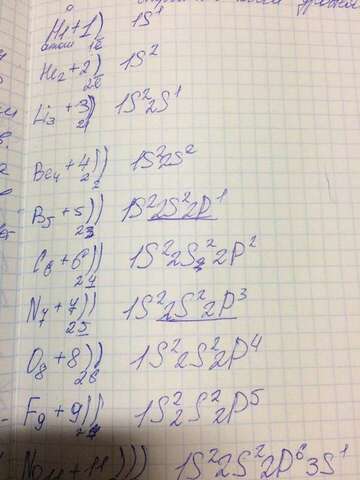 H₁ +1) 1S¹
атом 1ē
He₂ +2) 1S²
2ē
Li₃ +3)) 1S²2S¹
21
Be₄ +4)) 1S²2S²
2 2
B₅ +5)) 1S²2S²2P¹
23
C₆ +6)) 1S²2S²2P²
24
N₇ +7)) 1S²2S²2P³
25
O₈ +8)) 1S²2S²2P⁴
26
F₉ +9)) 1S²2S²2P⁵
Na₁₁ +11))) 1S²2S²2P⁶3S¹